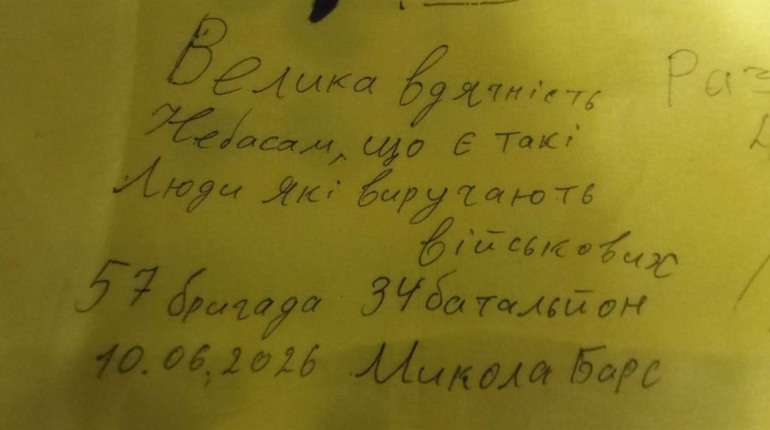 Велика вдячність
Раз
Небасам, що є такі
Люди які виручають
військових
57 бригада 34 батальйон
10.06.2026 Микола Барс